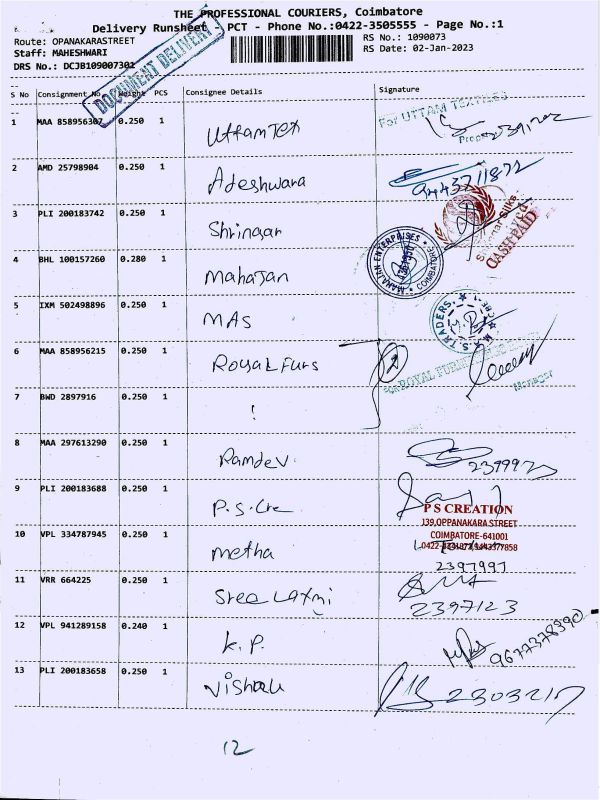 THE PROFESSIONAL COURIERS, Coimbatore
Delivery Runsheet - PCT - Phone No.:0422-3505555 - Page No.:1
Route: OPANAKARASTREET RS No.: 1090073
Staff: MAHESHWARI RS Date: 02-Jan-2023
DRS No.: DCJB109007301
DOCUMENT DELIVERY
S No Consignment No Weight PCS Consignee Details Signature
1 MAA 858956307 0.250 1 Uttam Tex For UTTAM TEXTILES
2 AMD 25798904 0.250 1 Adeshwara 9443711872
3 PLI 200183742 0.250 1 Shrinagar CASH PAID
4 BHL 100157260 0.280 1 Mahajan MAHAJAN ENTERPRISES COIMBATORE
5 IXM 502498896 0.250 1 MAS M.S. TRADERS
6 MAA 858956215 0.250 1 Royal Furs For ROYAL Manager
7 BWD 2897916 0.250 1
8 MAA 297613290 0.250 1 Ramdev
9 PLI 200183688 0.250 1 P.S. Cre
P S CREATION
139,OPPANAKARA STREET
10 VPL 334787945 0.250 1 Metha COIMBATORE-641001
2397997
11 VRR 664225 0.250 1 Sree Laxmi 2397123
12 VPL 941289158 0.240 1 K.P. 9677378390
13 PLI 200183658 0.250 1 Vishali 2303217
12